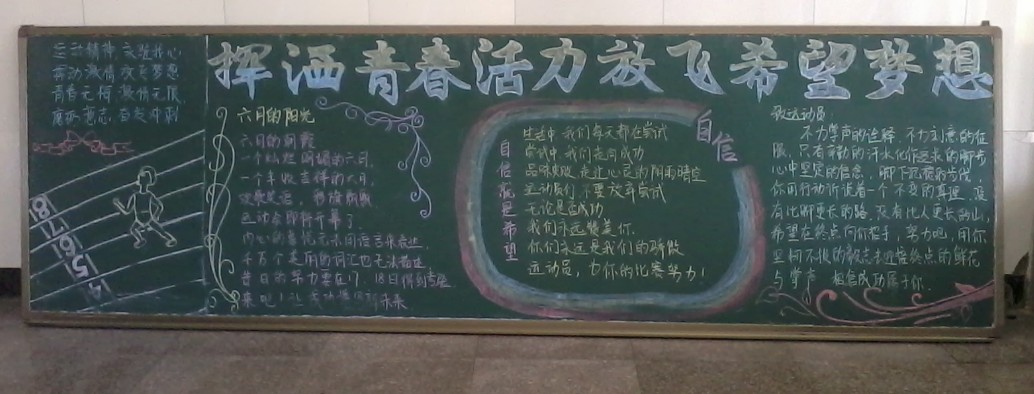 挥洒青春活力放飞希望梦想
运动精神
舞动激情放飞梦想
青春无悔激情无限
奋发冲刺
8
7
6
5
4
六月的阳光
六月的朝霞
一个灿烂明媚的六月,
一个丰收吉祥的六月,
运动会即将开幕了
内心的喜悦无法用语言来表达
千万个美丽的词汇也无法描述
昔日的努力要在17、18日得到
来吧!让 未来
自信就是希望
自信
生活中我们每天都在尝试
尝试中我们走向成功
品味失败,走过心灵的阴雨晴空
运动员们,不要放弃尝试
无论是否成功
我们永远赞美你.
你们永远是我们的骄傲
运动员,为你的比赛努力!
致运动员:
不为掌声的诠释,不为刻意的征
服,只有辛勤的汗水化作追求的脚步
心中坚定的信念,脚下沉稳的步伐,
你用行动诉说着一个不变的真理,没
有比脚更长的路,没有比人更高的山,
希望在终点向你招手,努力吧,用你
坚韧不拔的毅志去迎接终点的鲜花
与掌声,相信成功属于你.